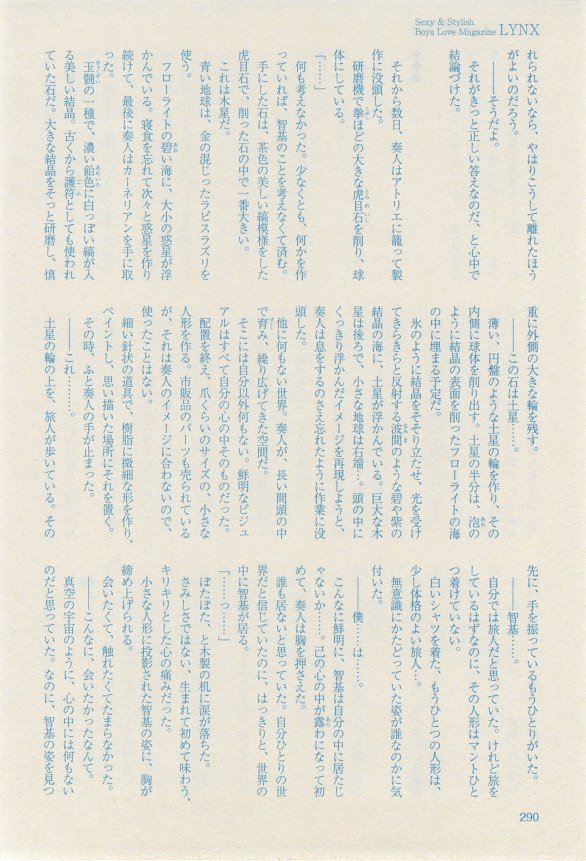 Sexy & Stylish
Boys Love Magazine LYNX
れられないなら、やはりこうして離れたほう
がよいのだろう。
――そうだよ。
それがきっと正しい答えなのだ、と心中で
結論づけた。
それから数日、奏人はアトリエに籠って製
作に没頭した。
研磨機で拳ほどの大きな虎目石を削り、球
体にしている。
「……」
何も考えなかった。少なくとも、何かを作
っていれば、智基のことを考えなくて済む。
手にした石は、茶色の美しい縞模様をした
虎目石で、削った石の中で一番大きい。
これは木星だ。
青い地球は、金の混じったラピスラズリを
使う。
フローライトの碧い海に、大小の惑星が浮
かんでいる。寝食を忘れて次々と惑星を作り
続けて、最後に奏人はカーネリアンを手に取
った。
玉髄の一種で、濃い飴色に白っぽい縞が入
る美しい結晶。古くから護符としても使われ
ていた石だ。大きな結晶をそっと研磨し、慎
重に外側の大きな輪を残す。
――この石は土星……。
薄い、円盤のような土星の輪を作り、その
内側に球体を削り出す。土星の半分は、泡の
ように結晶の表面を削ったフローライトの海
の中に埋まる予定だ。
氷のように結晶をそそり立たせ、光を受け
てきらきらと反射する波間のような碧や紫の
結晶の海に、土星が浮かんでいる。巨大な木
星は後ろで、小さな地球は右端…。頭の中に
くっきり浮かんだイメージを再現しようと、
奏人は息をするのさえ忘れたように作業に没
頭した。
他に何もない世界。奏人が、長い間頭の中
で育み、繰り広げてきた空間だ。
そこには自分以外何もない。鮮明なビジュ
アルはすべて自分の心の中そのものだった。
配置を終え、爪くらいのサイズの、小さな
人形を作る。市販品のパーツも売られている
が、それは奏人のイメージに合わないので、
使ったことはない。
細い針状の道具で、樹脂に微細な形を作り、
ペイントし、思い描いた場所にそれを置く。
その時、ふと奏人の手が止まった。
――これ………。
土星の輪の上を、旅人が歩いている。その
先に、手を振っているもうひとりがいた。
――智基……。
自分では旅人だと思っていた。けれど旅を
しているはずなのに、その人形はマントひと
つ着けていない。
白いシャツを着た、もうひとつの人形は、
少し体格のよい旅人…。
無意識にかたどっていた姿が誰なのかに気
付いた。
――僕……は……。
こんなに鮮明に、智基は自分の中に居たじ
ゃないか……。己の心の中が露わになって初
めて、奏人は胸を押さえた。
誰も居ないと思っていた。自分ひとりの世
界だと信じていたのに、はっきりと、世界の
中に智基が居る。
「……っ……」
ぽたぽた、と木製の机に涙が落ちた。
さみしさではない、生まれて初めて味わう、
キリキリとした心の痛みだった。
小さな人形に投影された智基の姿に、胸が
締め上げられる。
会いたくて、触れたくてたまらなかった。
――こんなに、会いたかったなんて。
真空の宇宙のように、心の中には何もない
のだと思っていた。なのに、智基の姿を見つ
290